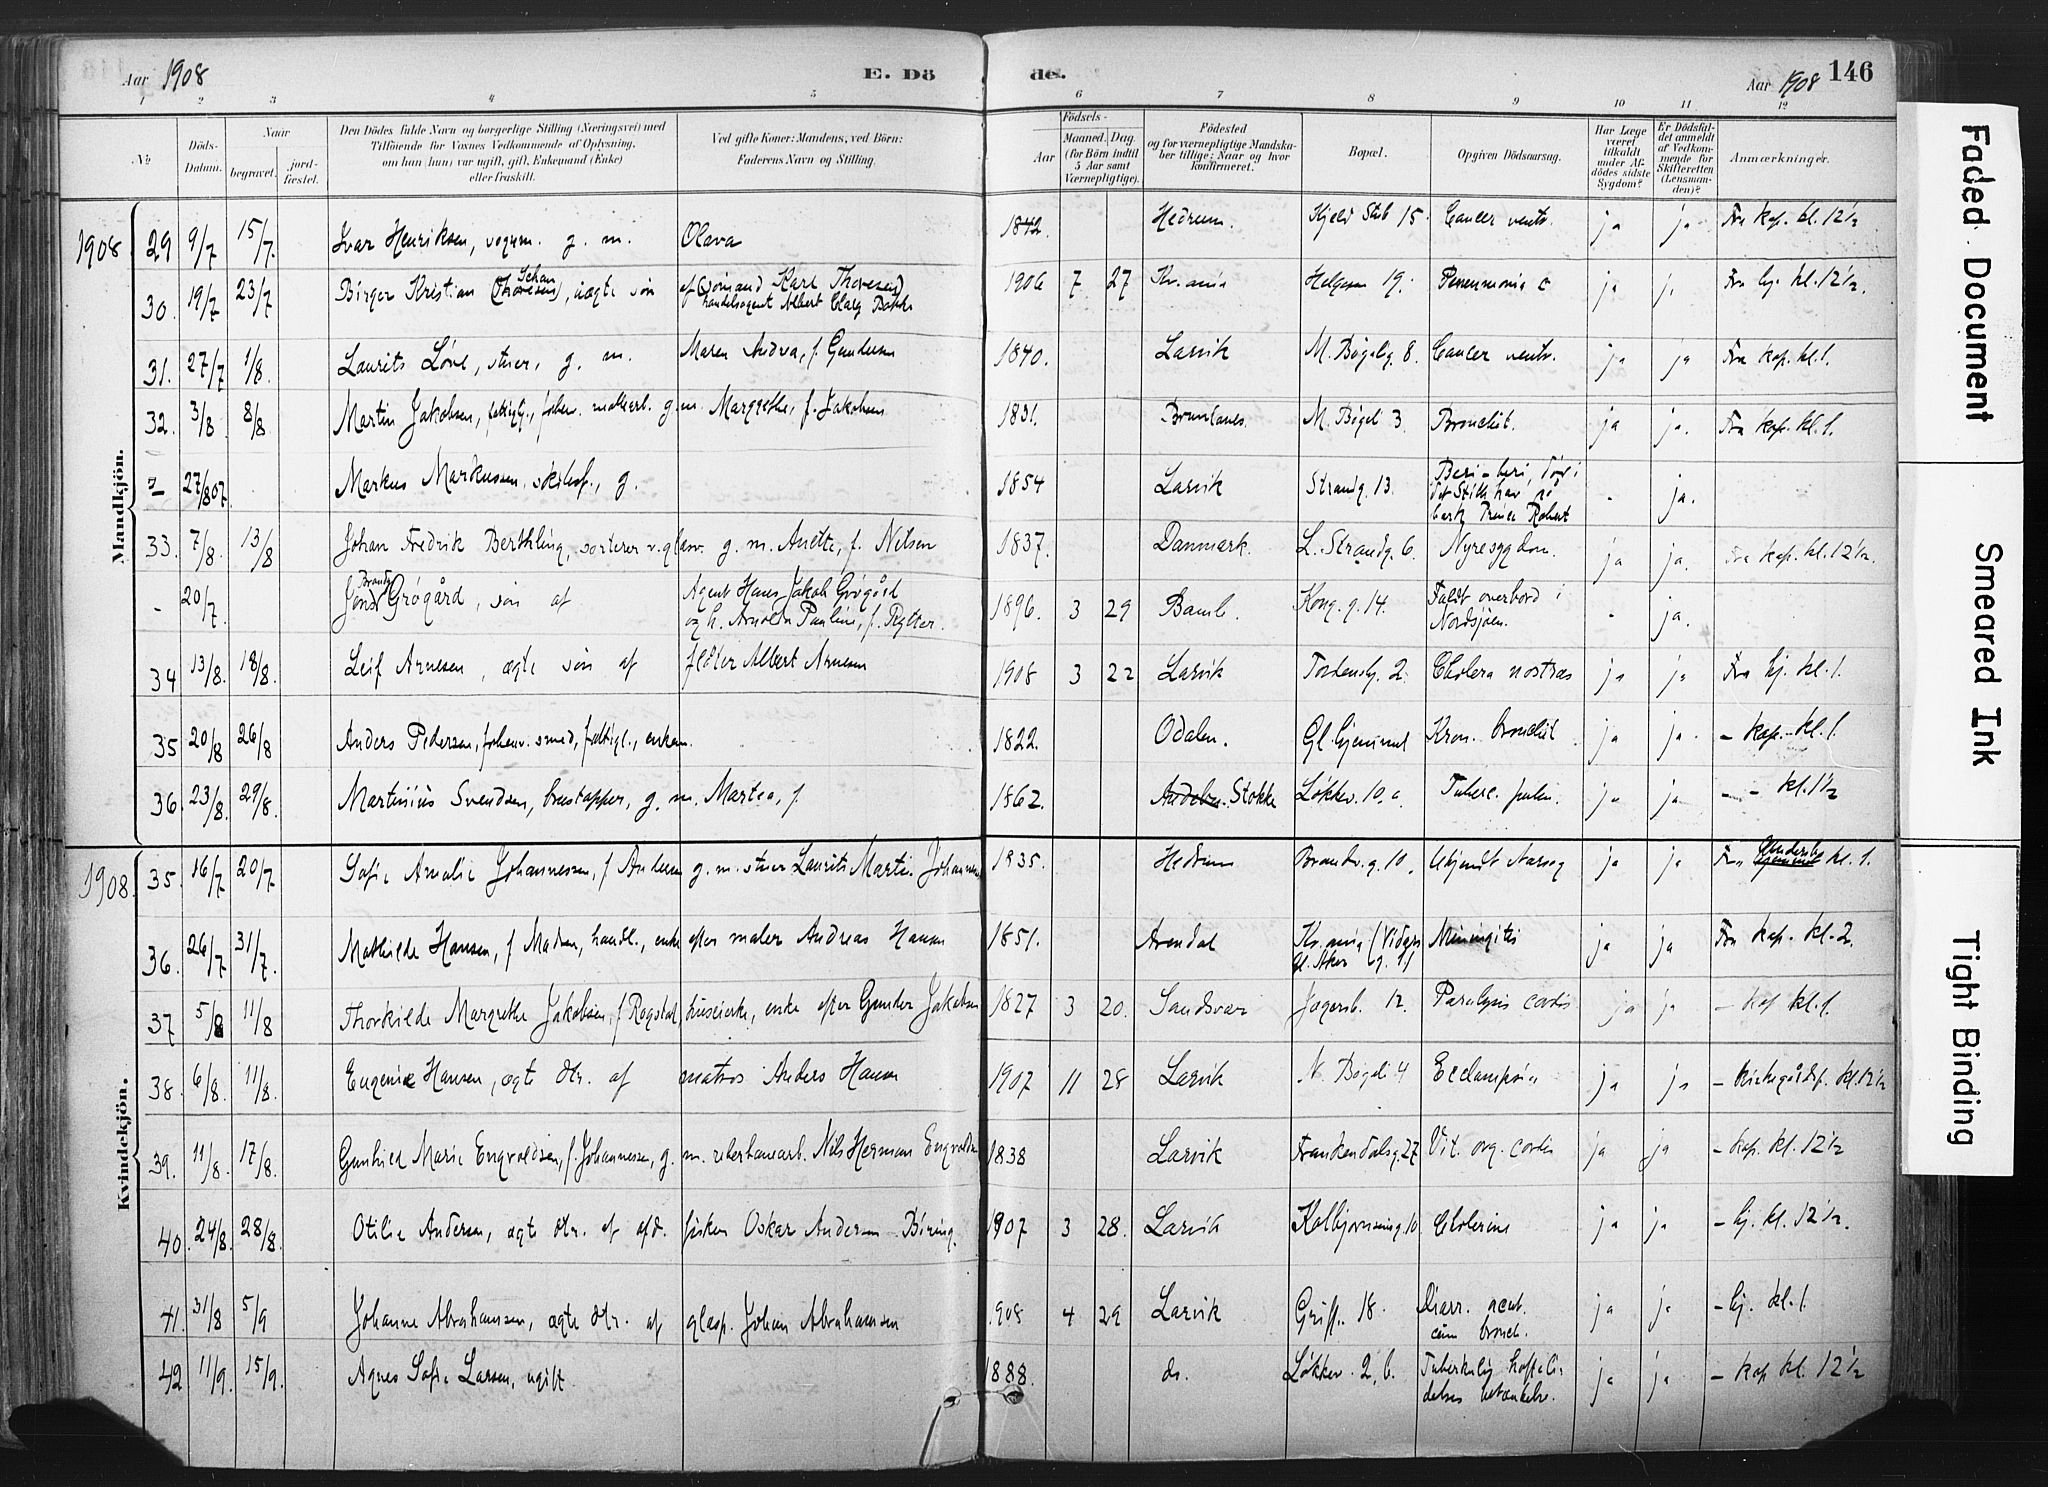 Aar 1908
E. Dö
de.
Aar 1908
146
1 2 3 4 5 6 7 8 9 10 11 12
№
Döds-Datum.
Naar
begravet.
jord-fæstet.
Den Dödes fulde Navn og borgerlige Stilling (Næringsvei) med
Tilföiende for Voxnes Vedkommende af Oplysning,
om han (hun) var ugift, gift, Enkemand (Enke)
eller fraskilt.
Ved gifte Koner: Mandens, ved Börn:
Faderens Navn og Stilling.
Födsels-
Aar
Maaned. Dag.
(for Börn indtil
5 Aar samt
Værnepligtige).
Födested
og for værnepligtige Mandska-
ber tillige: Naar og hvor
konfirmeret.
Bopæl.
Opgiven Dödsaarsag.
Har Læge
været
tilkaldt
under Af-
dödes sidste
Sygdom?
Er Dödsfal-
det anmeldt
af Vedkom-
mende for
Skifteretten
(Lensman-
den)?
Anmærkninger.
Mandkjön.
1908 29 9/7 15/7. Ivar Henriksen, g. m. Olava 1842. Hedrum. Kjeld Stub 15. Cancer ventr. ja ja Fra kap. kl. 12½
30. 19/7 23/7 Birger Kristian (Thoresen), uægte søn af (sømand Karl Thoresen) 1906 7 27 Kr.ania Helgesen 19. Pneumonia c ja j. Fra hj. kl. 12½.
handelsagent Albert
31. 27/7 1/8. Laurits Løve, stuer, g. m. Maren Andrea, f. Gundersen 1840. Larvik M. Bøgelig. 8. Cancer ventr. ja ja Fra kap. kl. 1.
32. 3/8. 8/8 Martin Jakobsen, fattigl., forhenv. g. m. Margrethe, f. Jakobsen 1831. Brunlanes. M. Bøgel 3. Bronchit. ja ja. Fra kap. kl. 1.
27/8 07. Markus Markussen, g. 1854 Larvik Strandg. 13. Beri-beri, død i - ja.
det Stille hav
bark Robert
33. 7/8. 13/8 Johan Fredrik Berthling, sorterer v. glasv. g. m. Anette, f. Nilsen 1837. Danmark. L. Strandg. 6. Nyresygdom. ja ja. Fra kap. kl. 12½.
- 20/7. Grøgård, søn af Agent Hans Jakob Grøgård 1896. 3 29 Bamb. Kong. g. 14. Faldt overbord i - ja.
og h. Pauline, f. Rytter. Nordsjøen.
34 13/8. 18/8. Leif Arnesen, ægte søn af Albert Arnesen 1908 3 22 Larvik 2. Cholera nostras ja ja Fra hj. kl. 1.
35 20/8 26/8 Anders Pedersen, forhenv. smed, fattigl., enkem. 1822. Odalen. Gl. hjemmet Kron. bronchit ja ja. - kap. - kl. 1.
36. 23/8. 29/8. Martinius Svendsen, g. m. Martea, f. 1862. Andebu. Stokke Løkkev. 10. a Tuberc. pulm. ja ja - - kl. 1½
Kvindekjön.
1908. 35. 16/7 20/7 Sofie Amalie Johannessen, f Andersen g. m. stuer Laurits Martin Johannessen 1835. Hedrum Brandv. g. 10. Ukjendt Aarsag ja ja kl. 1.
36. 26/7 31/7. Mathilde Hansen, f Madsen, handl., enke efter maler Andreas Hansen 1851. Arendal Kr.ania (Vidars Meningitis ja ja Fra kap. kl. 2.
gl. Aker g. 1)
37 5/8 11/8 Thorkilde Margrethe Jakobsen, f. Rogstad, huseierske, enke efter Gunder Jakobsen 1827 3 20. Sandsvær Jegersb. 12. Paralysis cordis ja ja - kap kl. 1.
38. 6/8. 11/8 Eugenie Hansen, ægte dtr. af matros Anders Hansen 1907 11 28 Larvik N. Bøgeli 4 Eclampsia ja ja - kirkegårdsp. kl. 12½
39. 11/8. 17/8. Gunhild Marie Engvoldsen, f. Johannessen, g. m. Nils Herman Engvoldsen 1838 Larvik Frankendalsg. 27 Vit. org. cordis ja ja - kap. kl. 12½
40. 24/8. 28/8. Otilie Andersen, ægte dtr. af afd. fisker Oskar Andersen 1907 3 28. Larvik Kolbjørnsensg. 10 Cholerine ja ja - hj. kl. 12½.
41. 31/8 5/9 Johanne Abrahamsen, ægte dtr. af glasp. Johan Abrahamsen 1908 4 29 Larvik Griff. 18. Diarr. acut. ja ja - hj. kl. 1.
cum bronch.
42 11/9. 15/9. Agnes Sofie Larsen, ugift 1888. do. Løkkev. 2, b. Tuberkuløs hofteli- ja ja - kap kl. 12½
delses betændelse.
Faded Document
Smeared Ink
Tight Binding